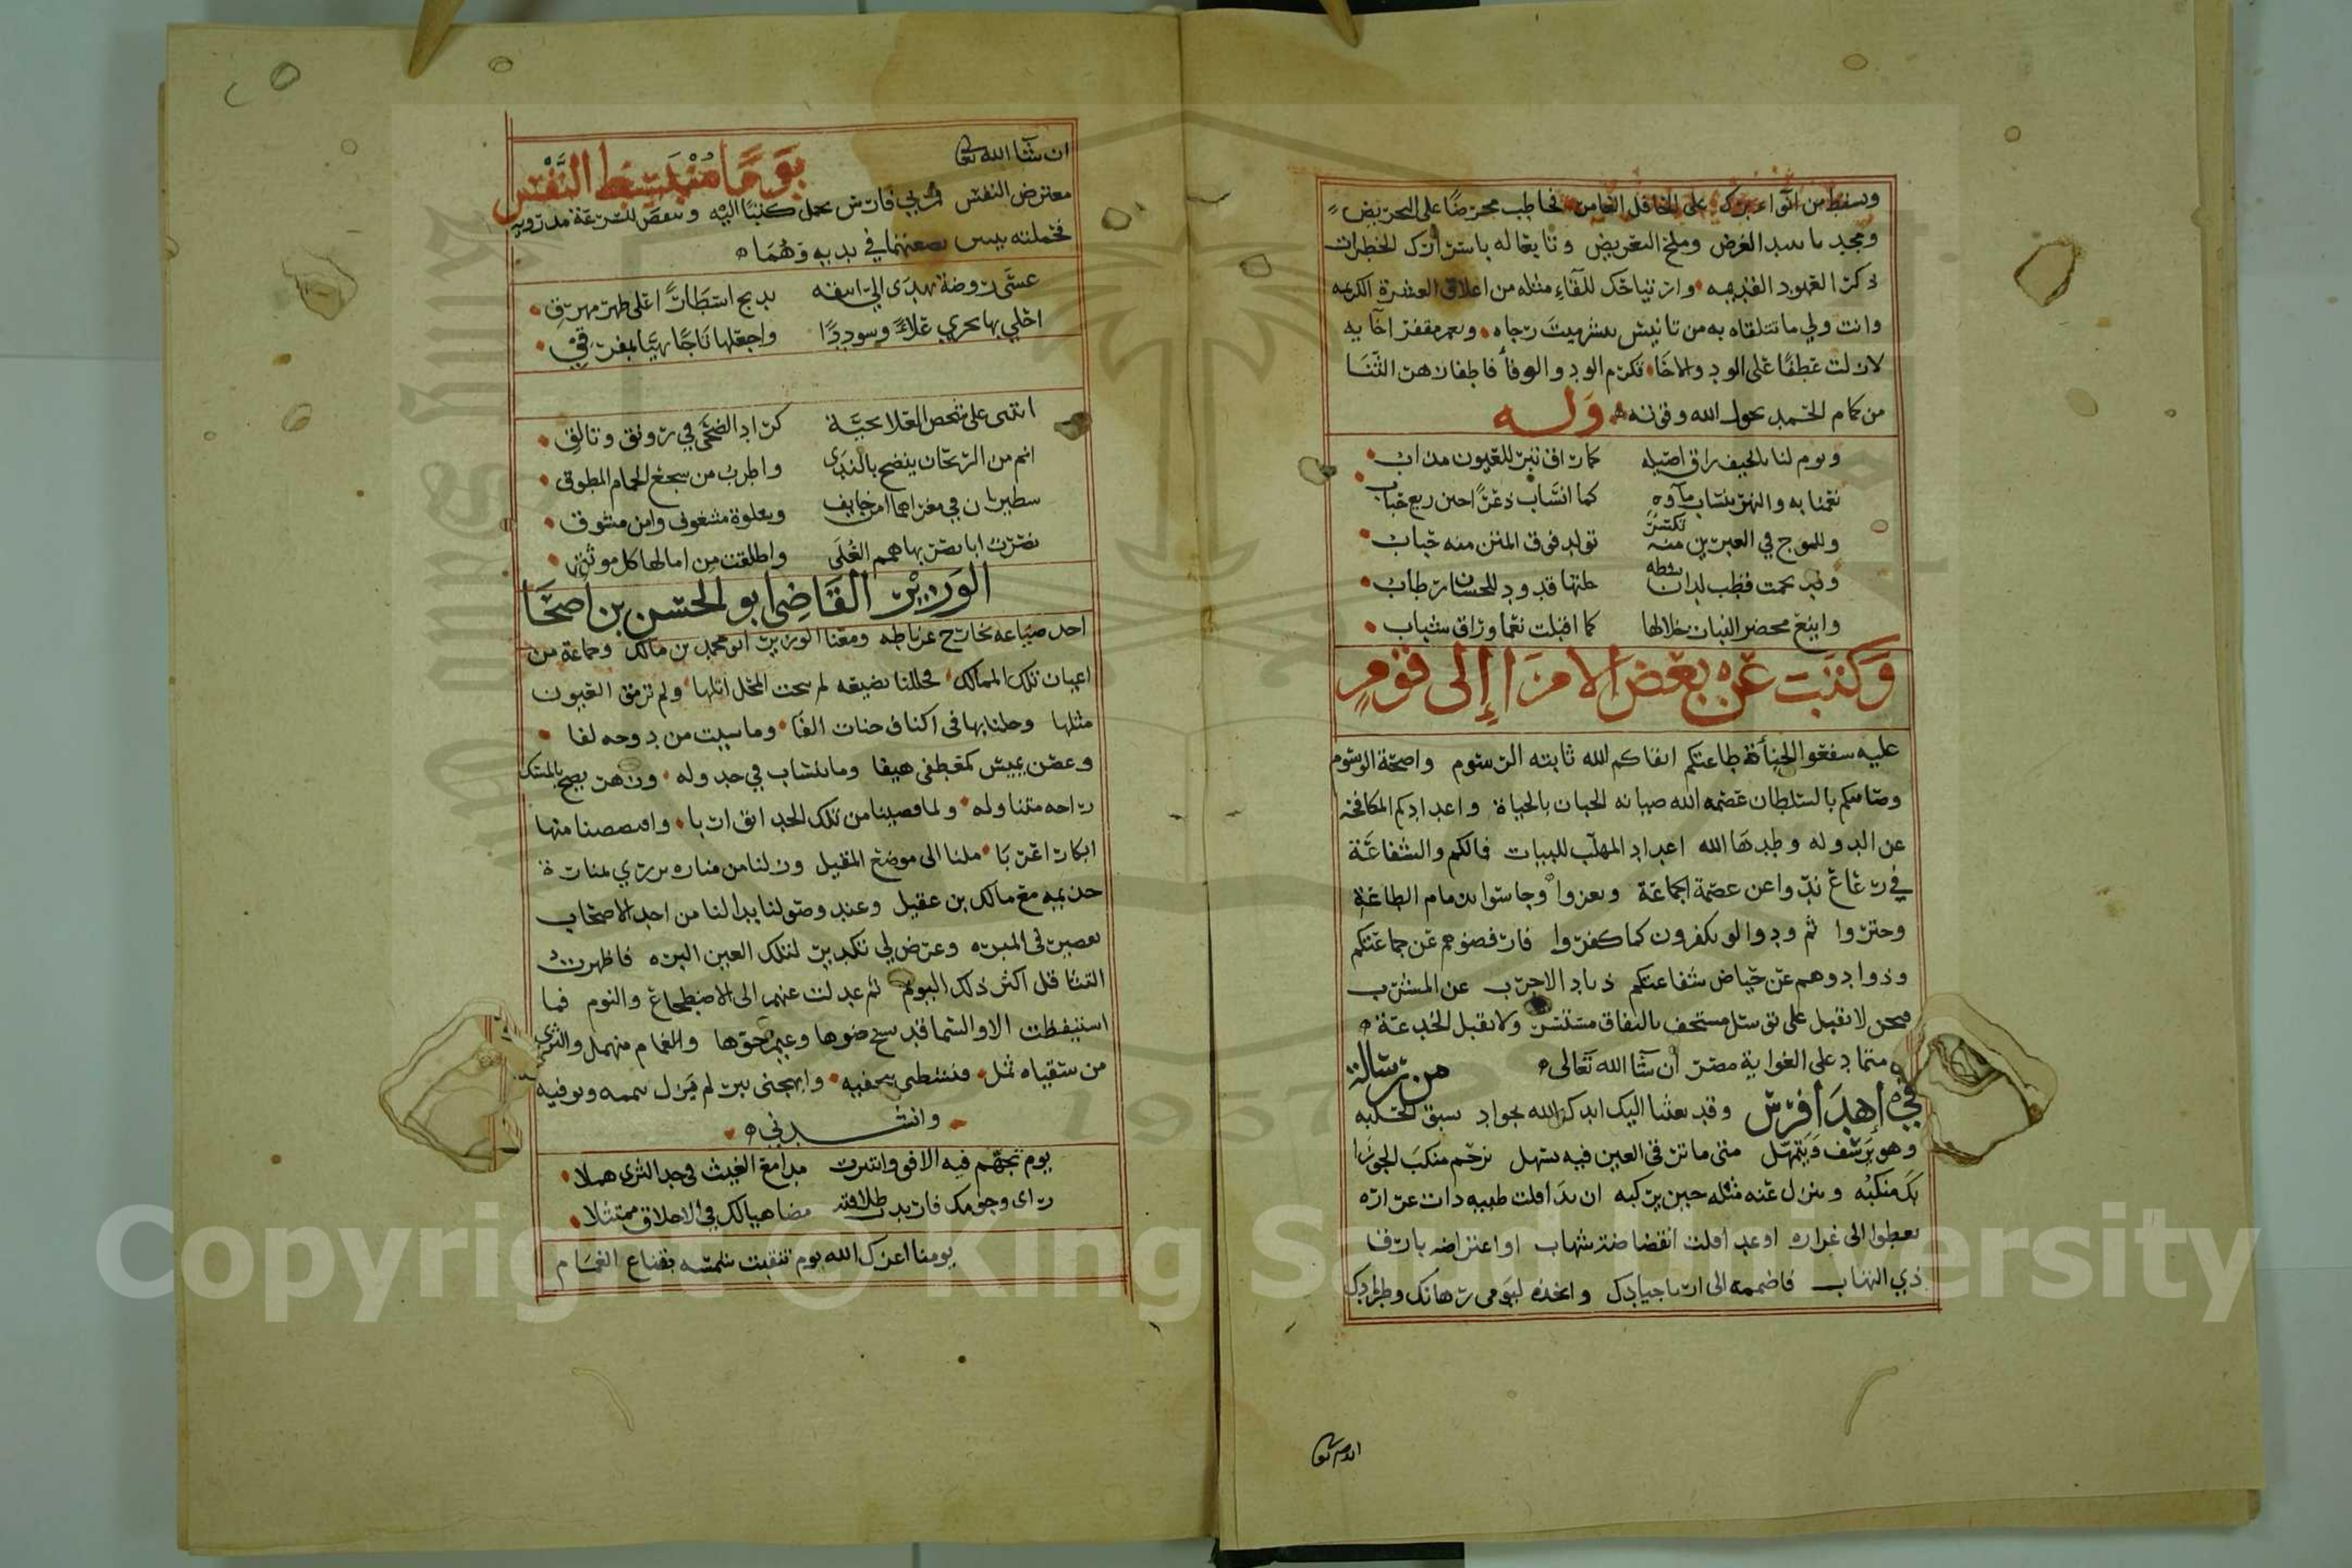 وسقط من انواء برك على الحافل الغامر فخاطب محرضا على التحريض
ويجد ما سد الغرض وملح التعريض وتا يعاله باستدراك الخطرات
ذكر العهود القديمه وارتياحك للقاء مثله من اعلاق العشرة الكريمه
وانت ولي ما تتلقاه به من تانيس ينشر ميت رجاه ويعمر مقفر اخايه
لازلت عطفا على الود والاخا تكرم الود والوفا فاطفا زهر الثنا
من كمام الحمد بحول الله وقوته وله
ويوم لنا بالخيف راق اصيله كما راق تبر للعيون مذاب
نعمنا به والنهر ينساب ماوه كما انساب ذعرا حين ريع حباب
وللموج في العبرين منه تكسر تولد فوق المتن منه حباب
وقد نجمت قضب لدان بشطه حلتها قدود للحسان رطاب
واينع محضر النبات خلالها كما اقبلت نعما وراق شباب
وكتبت عن بعض الامرا إلى قوم
عليه سفعوا لجناة طاعتكم ابقاكم الله ثابته الرسوم واضحة الوسوم
وضنانتكم بالسلطان عصمه الله صيانه الجبان بالحياة واعدادكم المكافحه
عن الدوله وطدها الله اعداد المهلب للبيات فالكم والشفاعة
في رعاع ندوا عن عصمة الجماعة ونعروا وجاسوا بذمام الطاعة
وختروا ثم ودوا لو تكفرون كما كفروا فارفضوهم عن جماعتكم
وذوادوهم عن حياض شفاعتكم ذياد الاجرب عن المشرب
فنحن لا نقبل على توسل مستخف بالنفاق مستتسر ولا نقبل الخدعة
متماد على الغواية مصر ان شا الله تعالى من رسالة
في إهدا فرس وقد بعثنا اليك ايدك الله بجواد يسبق الحلبه
وهو يرسف ويتمهل متى ما ترق العين فيه تسهل يزحم منكب الجوزا
بك منكبه وينزل عنه مثله حين يركبه ان بدا قلت ظبيه ذات عراره
تعطوا الى غراره او عدا قلت انقضاضة شهاب او اعتراض بارق
ذي التهاب فاضممه الى ارى جيادك واتخذه ليومي رهانك وطرادك
ان شا الله تعالى يوما منبسط النفس
معترض النفس فمر بي فارس يحمل كتبا اليه
فحملته بيتين في يديه وهما
عسى روضة تهدى الي انيقه تدبج اسطارا على ظهر مهرق
احلي بها نحري علاء وسوددا واجعلها تاجا بهيا لمفرقي
اتتنى على شخص العلا بحية كراد الضحى في رونق وتالق
انم من الريحان ينضح بالندى واطرب من سجع الحمام المطوق
سطيران في مغزاهما امن خايف وسلوة مشغوف وانس مشوق
نصرت ابا نصر بها همم العلى واطلقت من امالها كل موثق
الوزير القاضي أبو الحسن بن أضحا
احد ضياعه بخارج غرناطه ومعنا الوزير ابو محمد بن مالك وجماعة من
اعيان تلك الممالك فحللنا بضيعه لم ينحت المحل اثلها ولم ترمق العيون
مثلها وجلنا بها في اكناف جنات الفا وما سيت من دوحه لفا
وغصن يميس كمعطفي هيفا وما ينساب في جدوله وزهر يضمخ بالمسك
راحه متناوله ولما قضينا من تلك الحدايق اربا وافتضضنا منها
ابكارا عربا ملنا الى موضع المقيل وزلنا من مناره يزري بمنارة
جذيمه مع مالك بن عقيل وعند وصولنا بدا لنا من احد الاصحاب
تقصير في المبره وعرض لي تكدير لتلك العين الثره فاظهرت
التثاقل اكثر ذلك اليوم ثم عدلت عنهم الى الاضطجاع والنوم فما
استيقظت الا والسما قد نسخ صحوها وغيم جوها والغمام منهمل والثرى
من سقياه ثمل فنشطى بتحفيه وابهجني ببر لم يزل يتممه ويوفيه
وانشدني
يوم تجهم فيه الافق وانتثرت مدامع الغيث في خد الثرى هملا
راى وجومك فاربد طلاقته مضاهيا لك في الاخلاق ممتثلا
يومنا اعزك الله يوم تنقبت شمسه بقناع الغمام